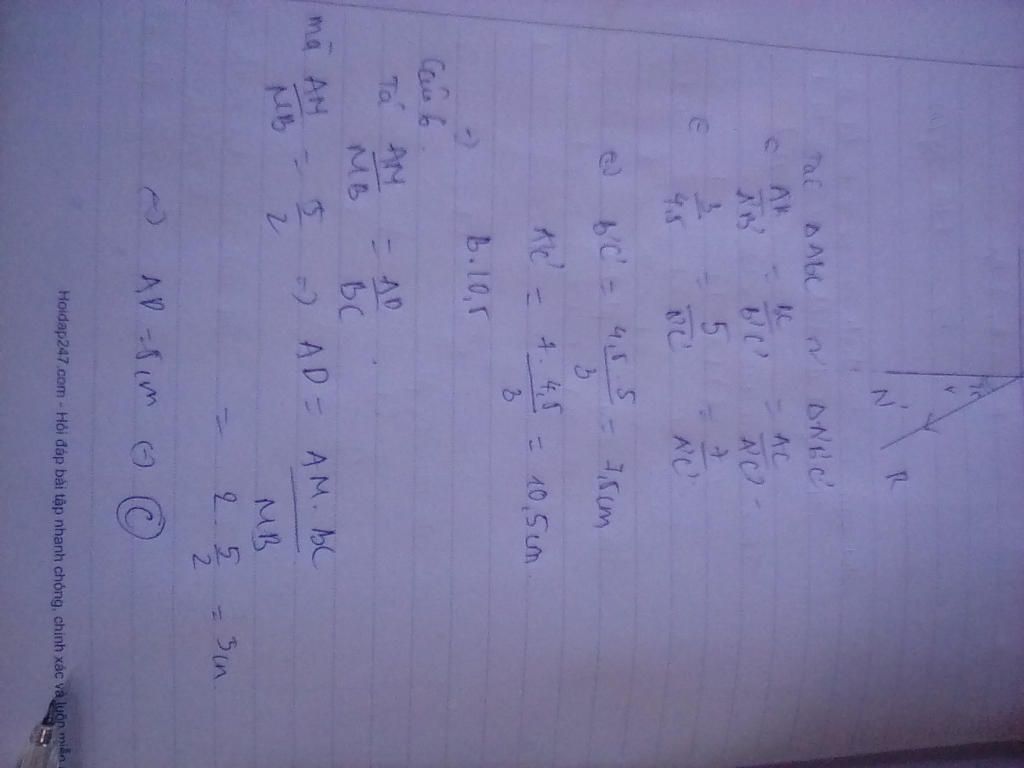 N
R
Δ ABC ~ Δ A'B'C'
= BC/B'C' = AC/A'C'
3/4,5 = 5/B'C' = 7/A'C'
B'C' = 4,5 . 5/3 = 7,5 cm
A'C' = 7 . 4,5/3 = 10,5 cm.
=) B. 10,5
Câu 6.
Ta AM/MB = AD/BC.
mà AM/MB = 5/2 =) AD = AM . BC/MB
= 2 5/2 = 5 cm.
AD = 5 cm C
Hoidap247.com - Hỏi đáp bài tập nhanh chóng, chính xác và luôn miễn